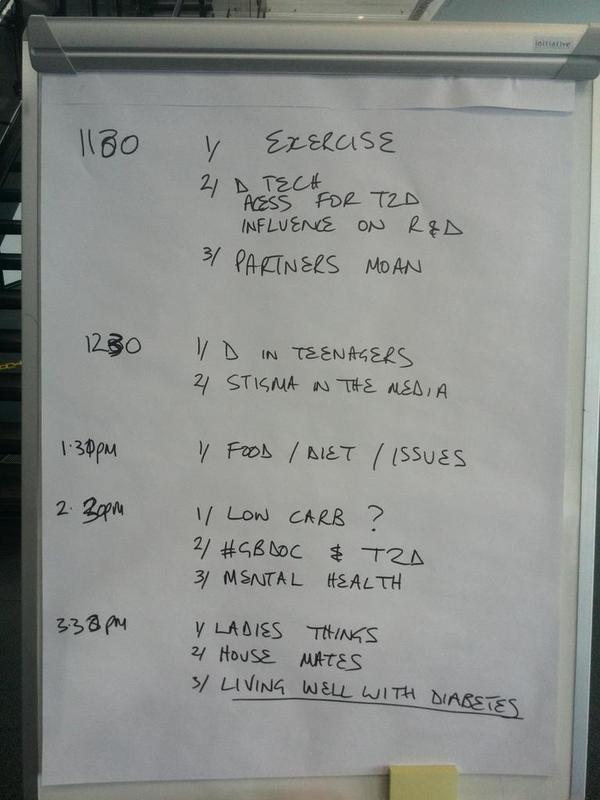 initiative
1130 1/ EXERCISE
2/ D TECH
ACESS FOR T2D
INFLUENCE ON R&D
3/ PARTNERS MOAN
1230 1/ D IN TEENAGERS
2/ STIGMA IN THE MEDIA
1.30pm 1/ FOOD / DIET / ISSUES
2.30pm 1/ LOW CARB ?
2/ #GBDOC & T2D
3/ MENTAL HEALTH
3.30pm 1/ LADIES THINGS
2/ HOUSE MATES
3/ LIVING WELL WITH DIABETES